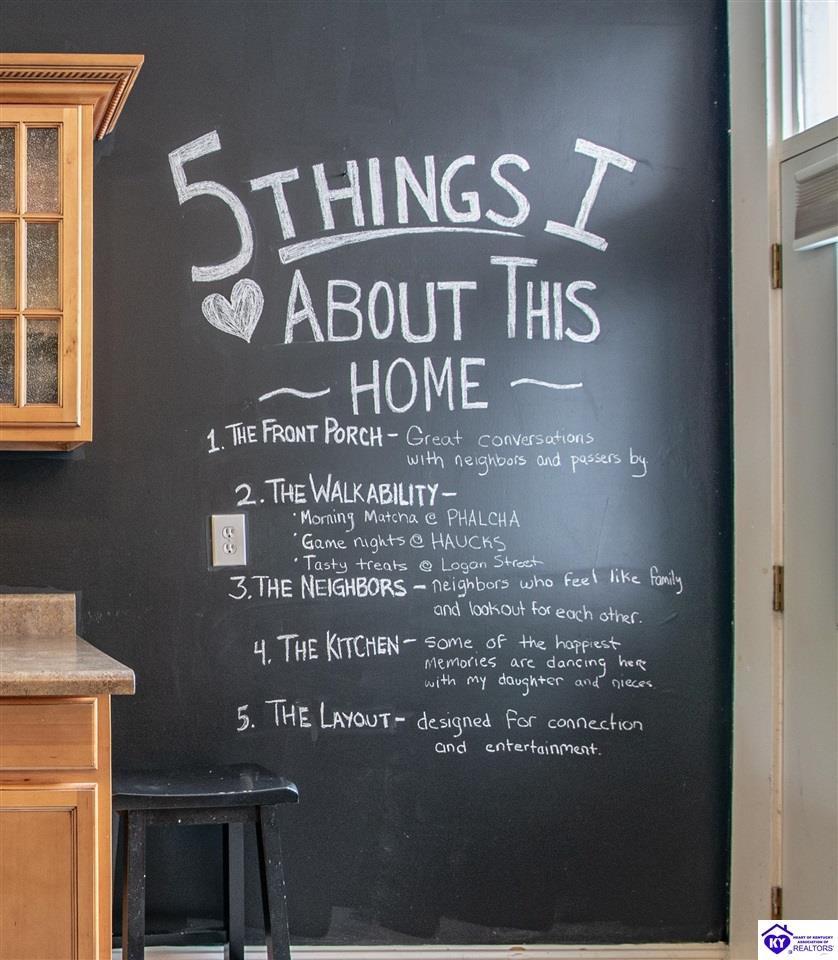 5 THINGS I
♥ ABOUT THIS
~ HOME ~
1. THE FRONT PORCH - Great conversations
with neighbors and passers by.
2. THE WALKABILITY -
• Morning Matcha @ PHALCHA
• Game nights @ HAUCKS
• Tasty treats @ Logan Street
3. THE NEIGHBORS - neighbors who feel like family
and lookout for each other.
4. THE KITCHEN - some of the happiest
memories are dancing here
with my daughter and nieces.
5. THE LAYOUT - designed for connection
and entertainment.
KY
HEART OF KENTUCKY
ASSOCIATION OF
REALTORS®